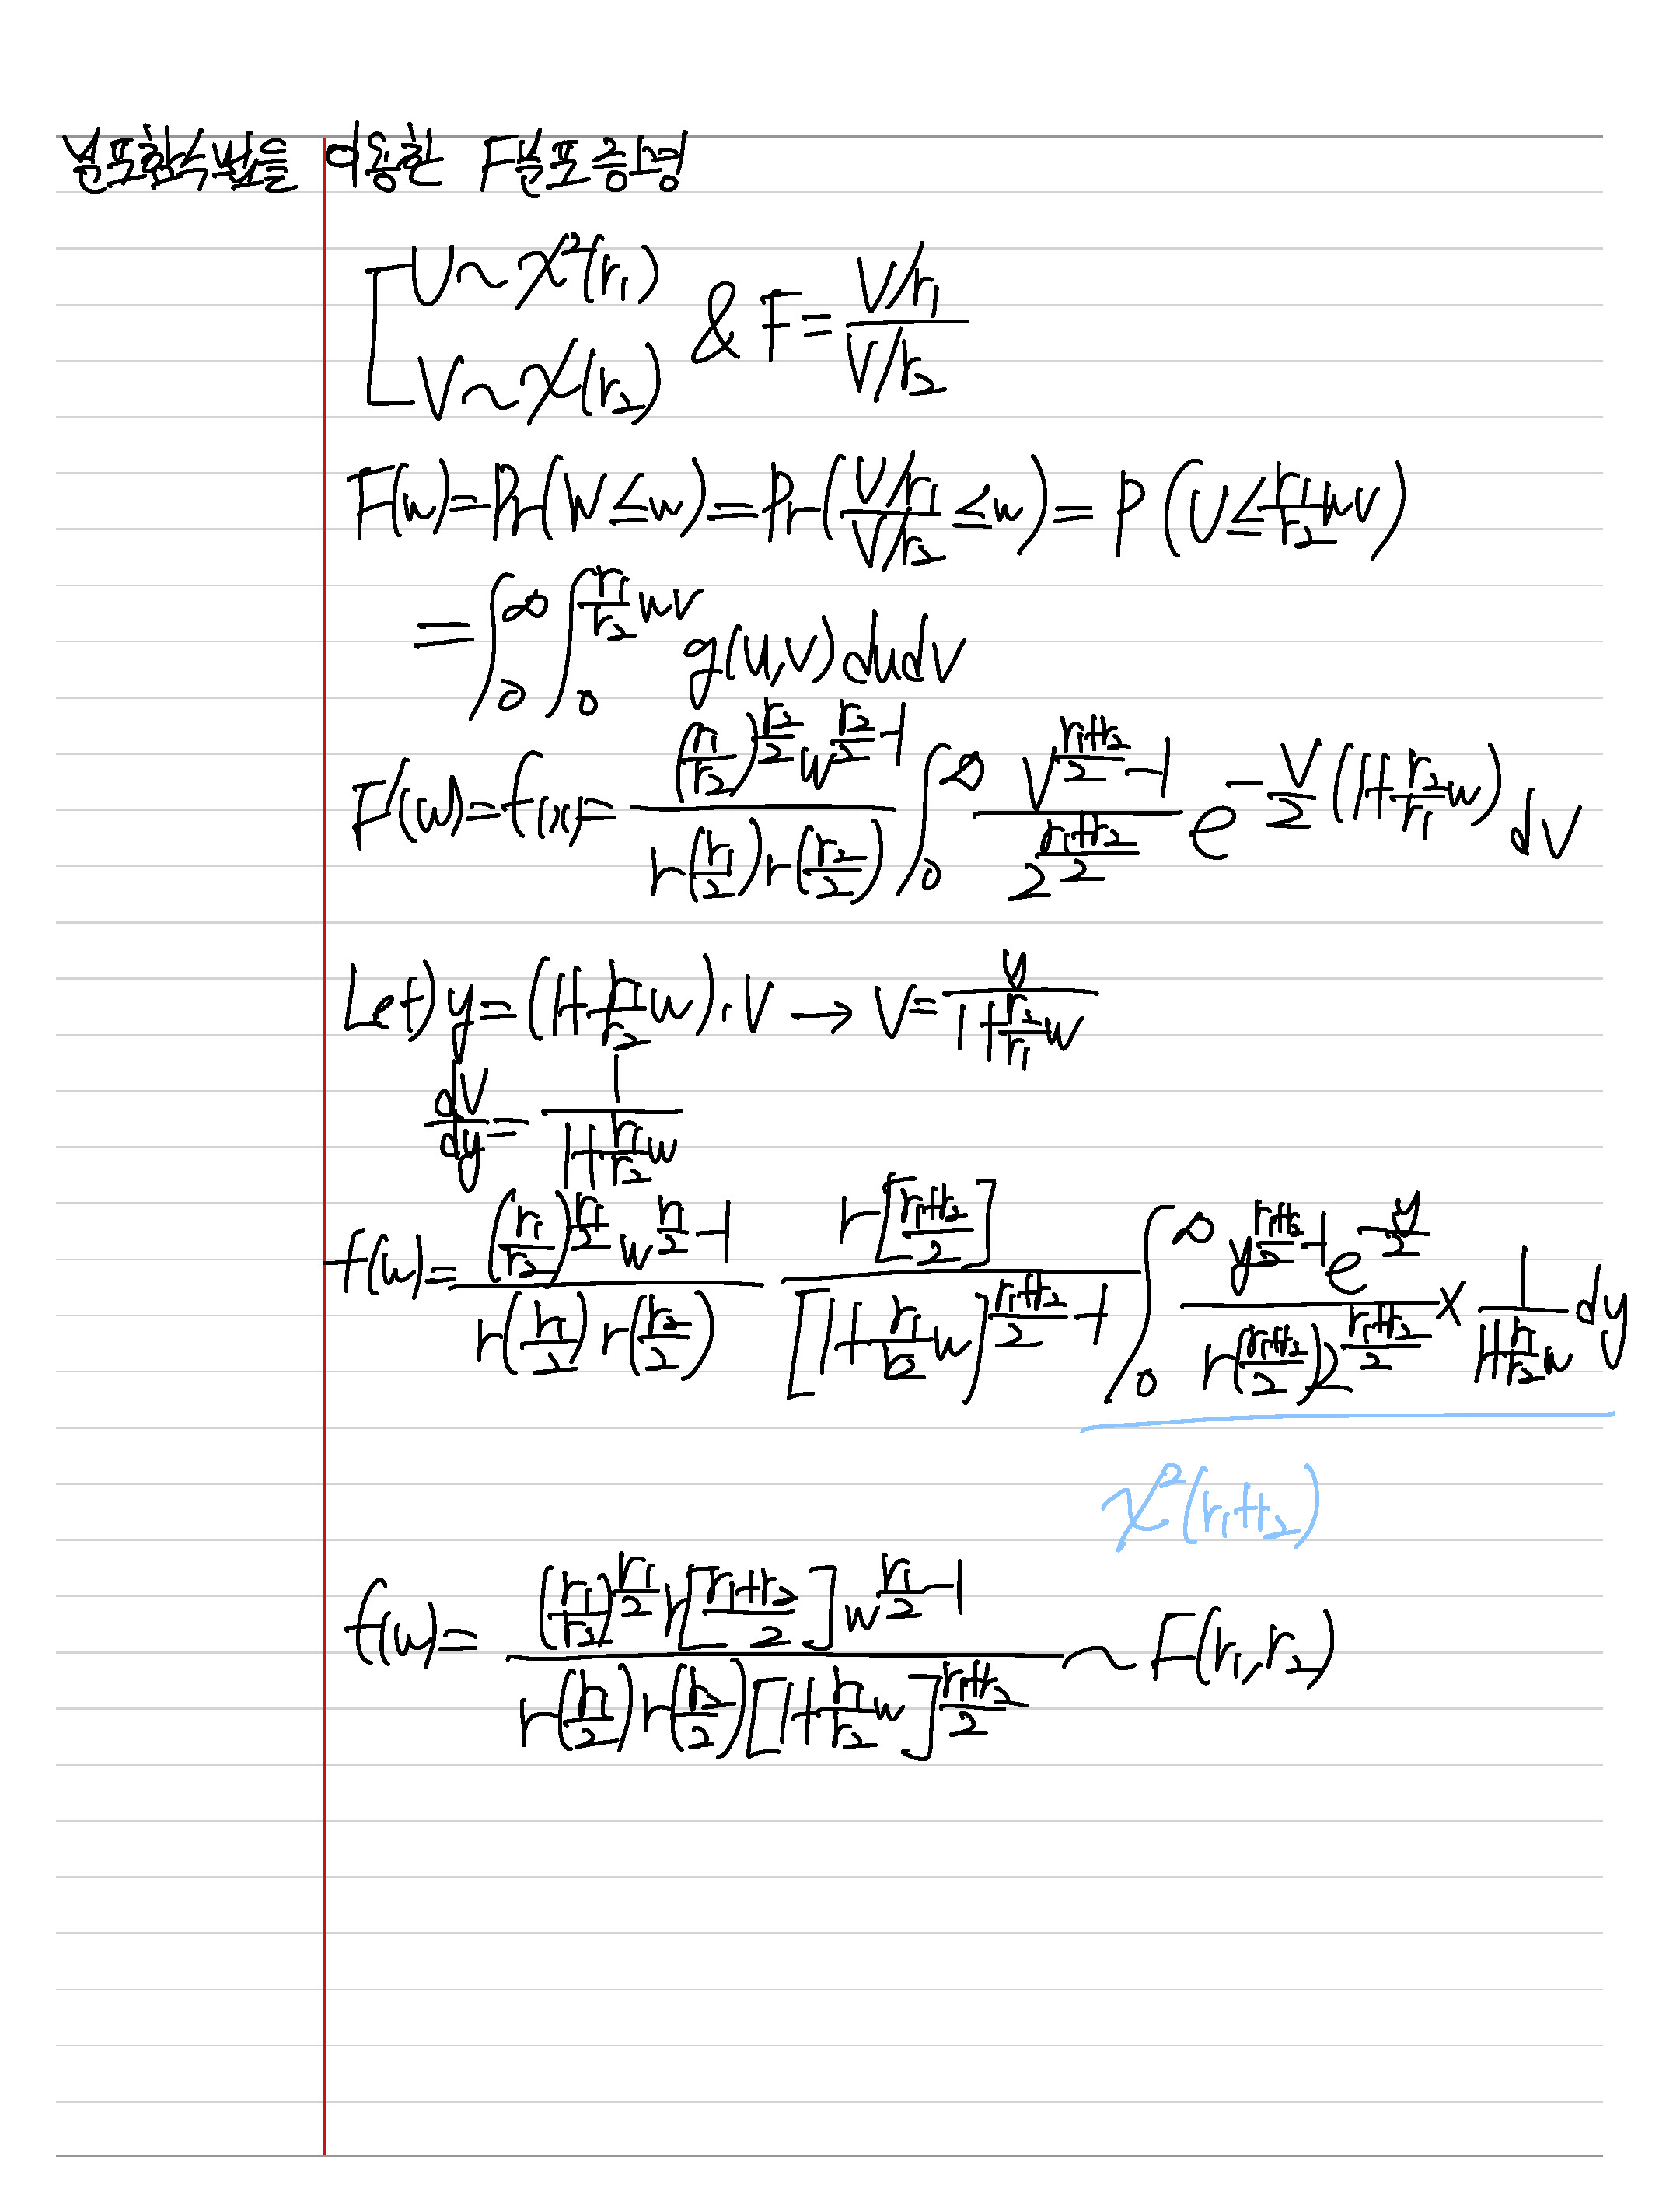 분포함수법을 이용한 F분포 증명
U~χ²(r₁)
V~χ(r₂) & F = (V/r₁)/(V/r₂)
F(w) = Pr(W ≤ w) = Pr((U/r₁)/(V/r₂) ≤ w) = P(U ≤ (r₁/r₂)wv)
= ∫₀^∞ ∫₀^((r₁/r₂)wv) g(u,v) du dv
F'(w) = f(x) = [(r₁/r₂)^(r₂/2) w^(r₂/2 - 1)] / [Γ(r₁/2) Γ(r₂/2)] ∫₀^∞ [V^((r₁+r₂)/2 - 1)] / [2^((r₁+r₂)/2)] e^(-V/2 (1+(r₂/r₁)w)) dV
Let) y = (1+(r₁/r₂)w)·V → V = y / (1+(r₂/r₁)w)
dV/dy = 1 / (1+(r₁/r₂)w)
f(w) = [(r₁/r₂)^(r₁/2) w^(r₁/2 - 1)] / [Γ(r₁/2) Γ(r₂/2)] Γ[(r₁+r₂)/2] / [1+(r₁/r₂)w]^((r₁+r₂)/2 - 1) ∫₀^∞ [y^((r₁+r₂)/2 - 1) e^(-y/2)] / [Γ((r₁+r₂)/2) 2^((r₁+r₂)/2)] × 1/(1+(r₁/r₂)w) dy
χ²(r₁+r₂)
f(w) = [(r₁/r₂)^(r₁/2) Γ[(r₁+r₂)/2] w^(r₁/2 - 1)] / [Γ(r₁/2) Γ(r₂/2) [1+(r₁/r₂)w]^((r₁+r₂)/2)] ~ F(r₁, r₂)